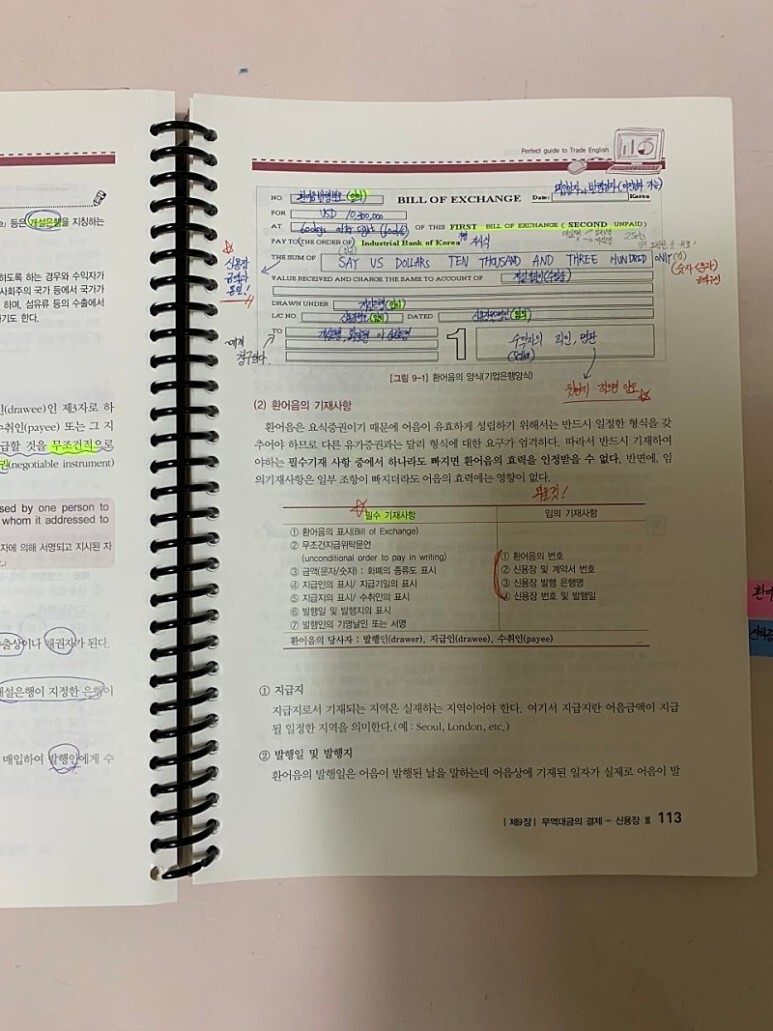 e」 등은 개설은행을 지칭하는
하도록 하는 경우와 수익자가
사회주의 국가 등에서 국가가
하며, 섬유류 등의 수출에서
기도 한다.
인(drawee)인 제3자로 하
수취인(payee) 또는 그 지
급할 것을 무조건적으로
권(negotiable instrument)
sed by one person to
whom it addressed to
자에 의해 서명되고 지시된 자
수출상이나 채권자가 된다.
개설은행이 지정한 은행이
매입하여 발행인에게 수
Perfect guide to Trade English
NO. 환어음발행번호 (임의) BILL OF EXCHANGE Date: Korea
FOR USD 10,300,000
AT 60days after sight OF THIS FIRST BILL OF EXCHANGE ( SECOND UNPAID)
PAY TO(THE ORDER OF) Industrial Bank of Korea 지시식
THE SUM OF SAY US DOLLARS TEN THOUSAND AND THREE HUNDRED ONLY
신용장
금액과
동일!
(숫자<문자)
VALUE RECEIVED AND CHARGE THE SAME TO ACCOUNT OF
DRAWN UNDER 개설은행 (임의)
L/C NO. 신용장번호 (임의) DATED 신용장발행일 (임의)
TO
~에게
청구한다.
1
수익자의 기명, 날인
[그림 9-1] 환어음의 양식(기업은행양식)
(2) 환어음의 기재사항
환어음은 요식증권이기 때문에 어음이 유효하게 성립하기 위해서는 반드시 일정한 형식을 갖
추어야 하므로 다른 유가증권과는 달리 형식에 대한 요구가 엄격하다. 따라서 반드시 기재하여
야하는 필수기재 사항 중에서 하나라도 빠지면 환어음의 효력을 인정받을 수 없다. 반면에, 임
의기재사항은 일부 조항이 빠지더라도 어음의 효력에는 영향이 없다.
외울것!
필수 기재사항
임의 기재사항
① 환어음의 표시(Bill of Exchange)
② 무조건지급위탁문언
(unconditional order to pay in writing)
③ 금액(문자/숫자) : 화폐의 종류도 표시
④ 지급인의 표시/ 지급기일의 표시
⑤ 지급지의 표시/ 수취인의 표시
⑥ 발행일 및 발행지의 표시
⑦ 발행인의 기명날인 또는 서명
① 환어음의 번호
② 신용장 및 계약서 번호
③ 신용장 발행 은행명
④ 신용장 번호 및 발행일
환어음의 당사자 : 발행인(drawer), 지급인(drawee), 수취인(payee)
① 지급지
지급지로서 기재되는 지역은 실재하는 지역이어야 한다. 여기서 지급지란 어음금액이 지급
될 일정한 지역을 의미한다.(예 : Seoul, London, etc.)
② 발행일 및 발행지
환어음의 발행일은 어음이 발행된 날을 말하는데 어음상에 기재된 일자가 실제로 어음이 발
| 제9장 | 무역대금의 결제 - 신용장 Ⅲ 113